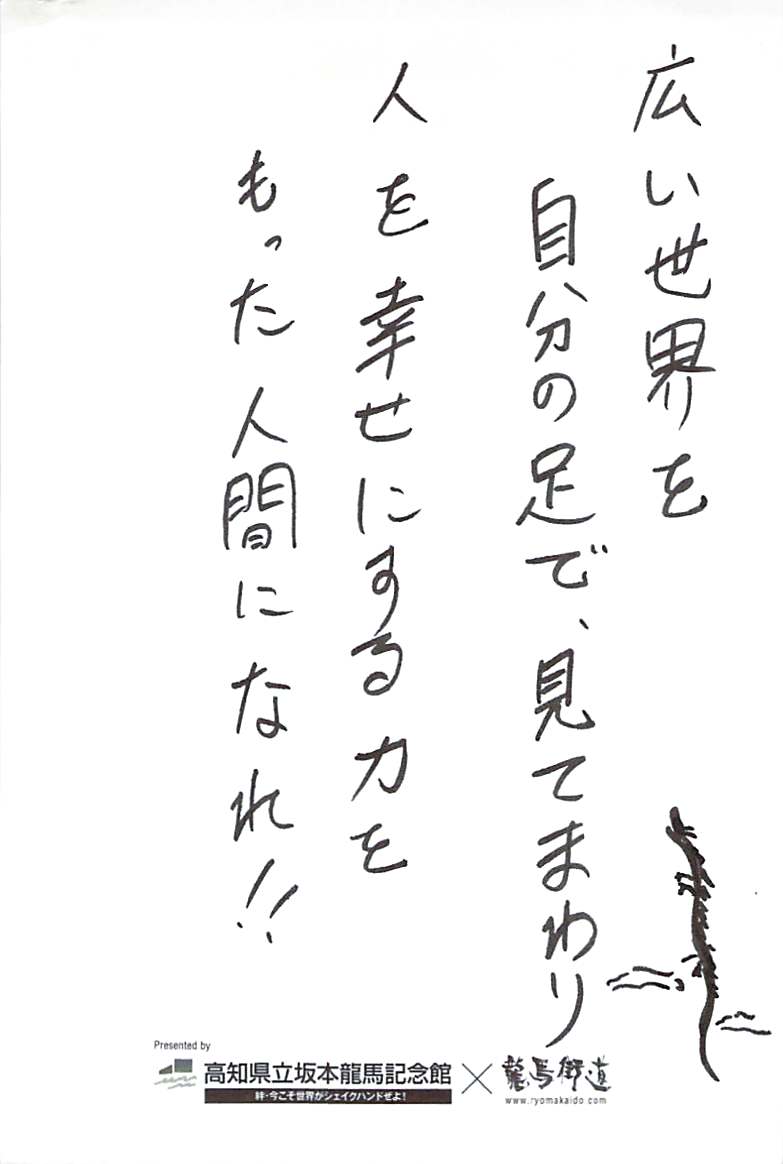 広い世界を
自分の足で、見てまわり
人を幸せにする力を
もった人間になれ!!
Presented by
高知県立坂本龍馬記念館×龍馬街道
絆・今こそ世界がシェイクハンドぜよ!
www.ryomakaido.com